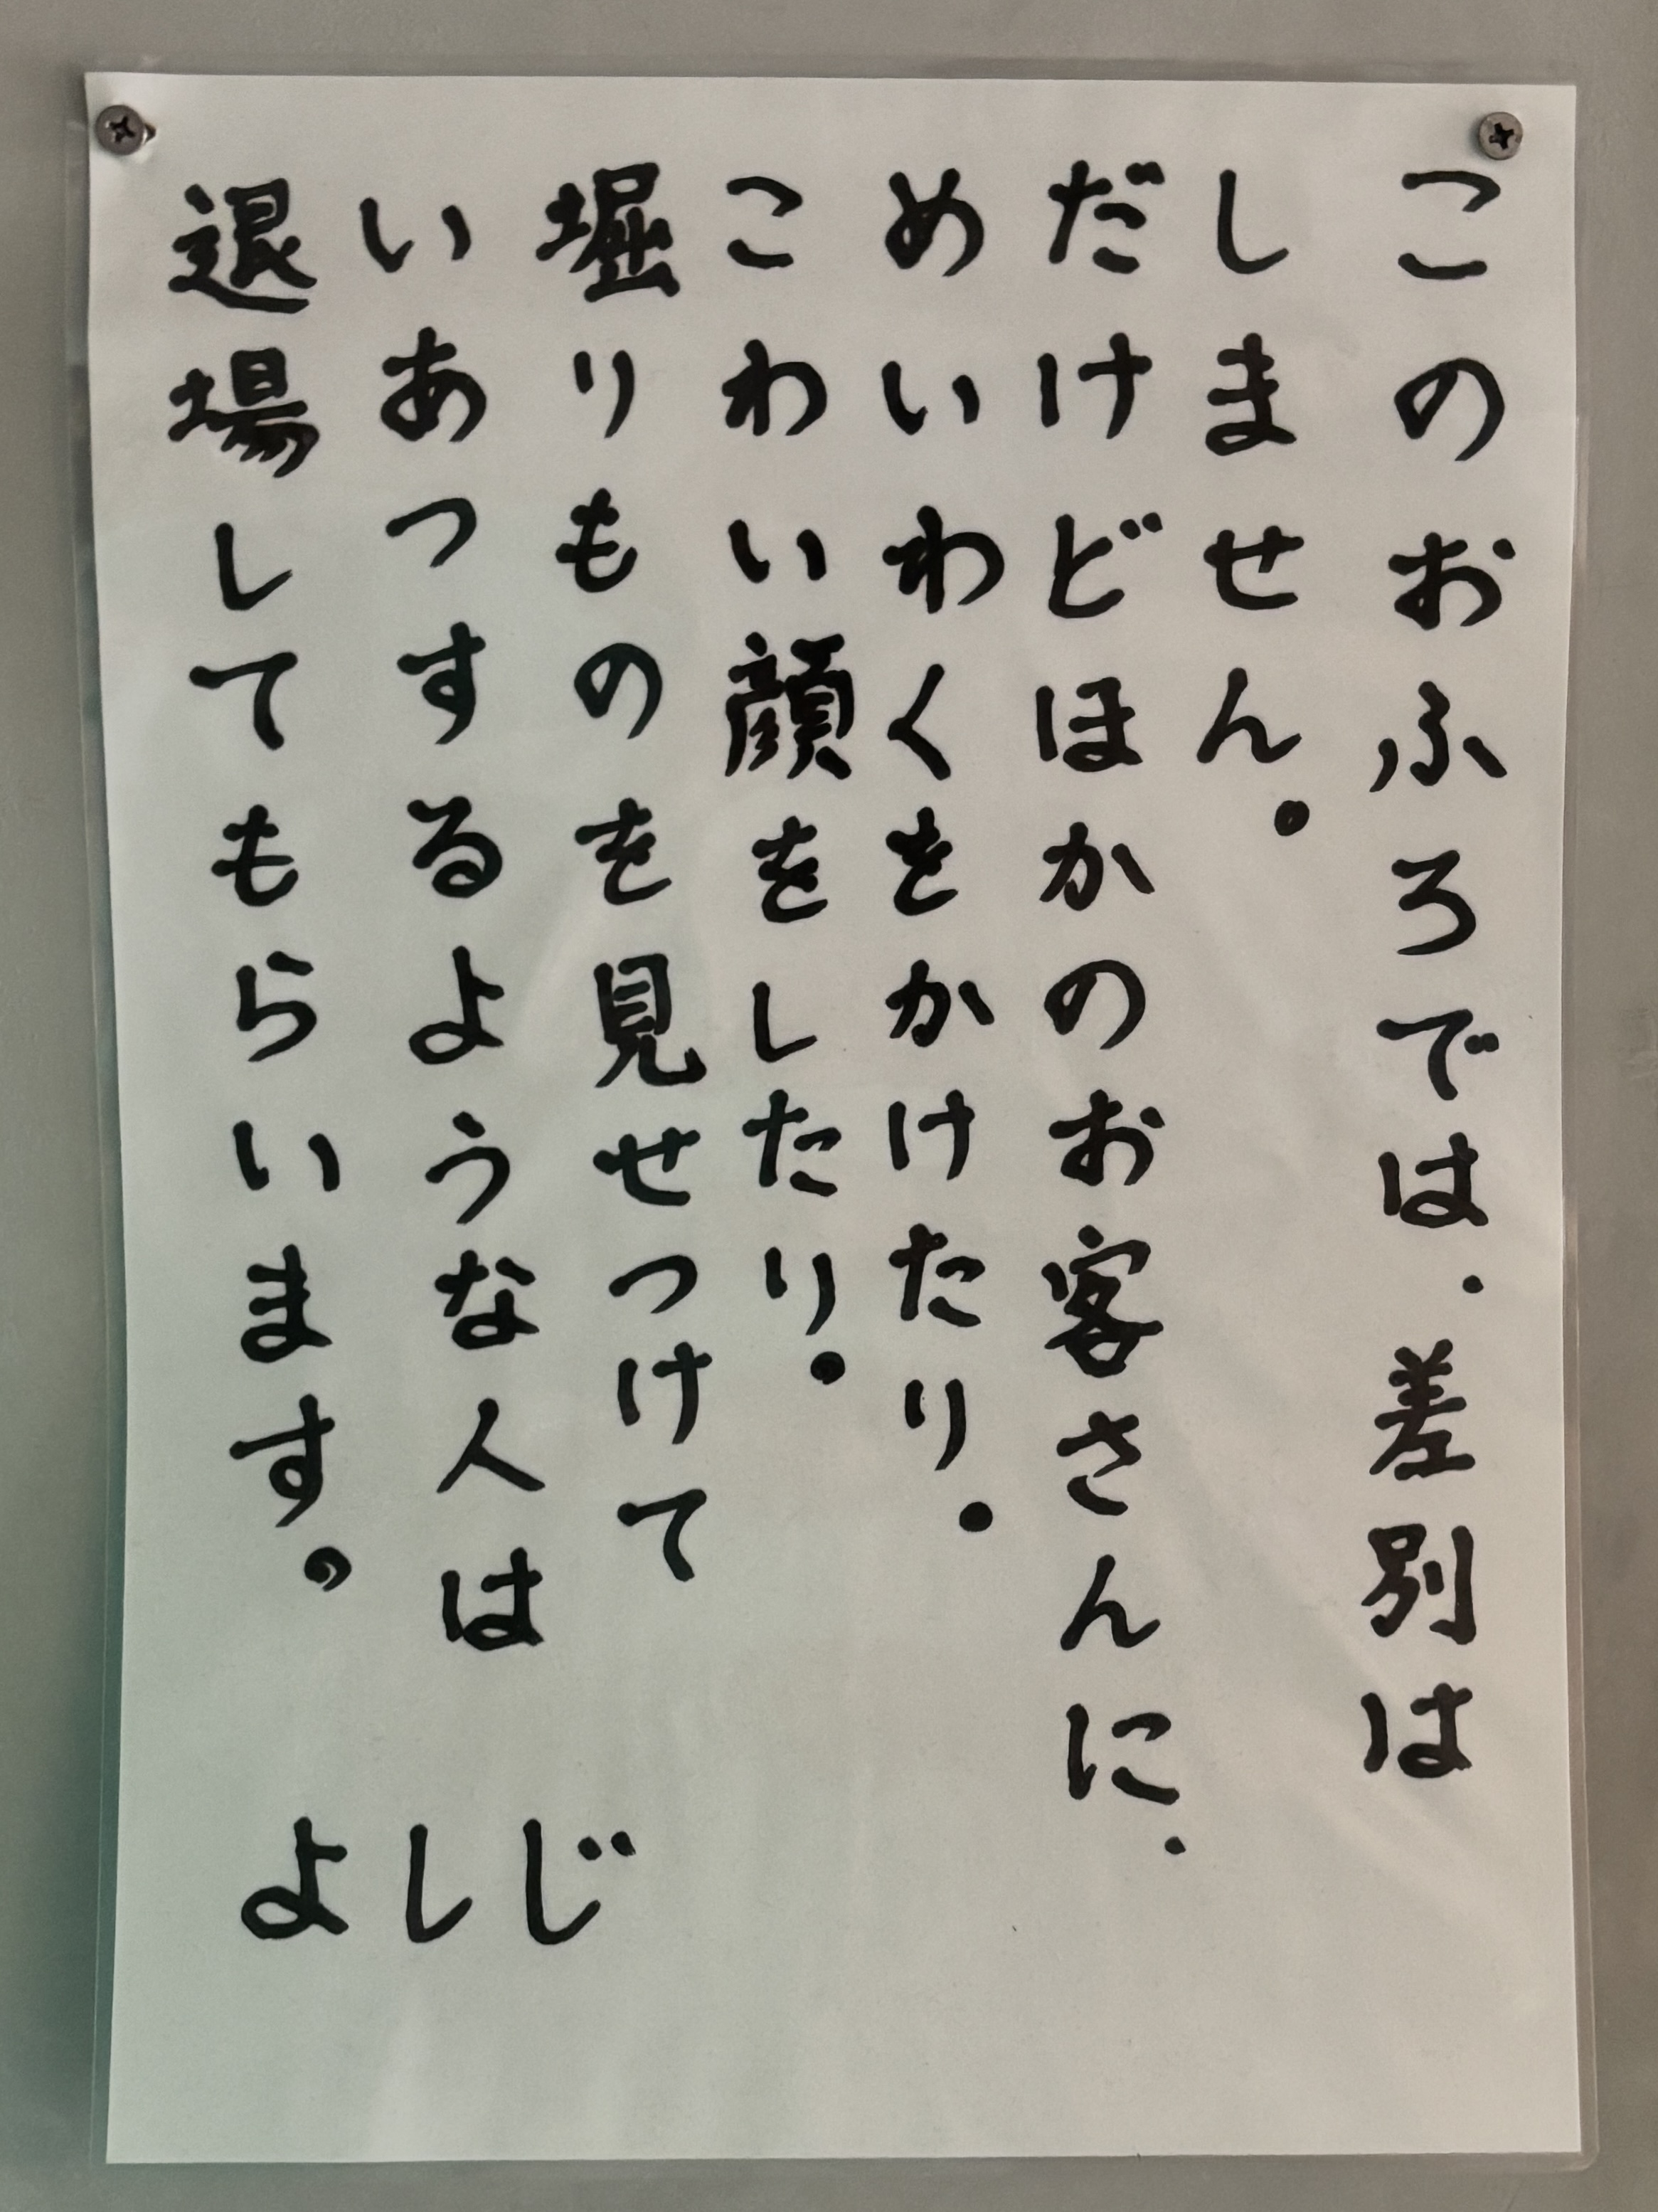 このおふろでは、差別は
しません。
だけどほかのお客さんに、
めいわくをかけたり。
こわい顔をしたり。
堀りものを見せつけて
いあつするような人は
退場してもらいます。
よしじ